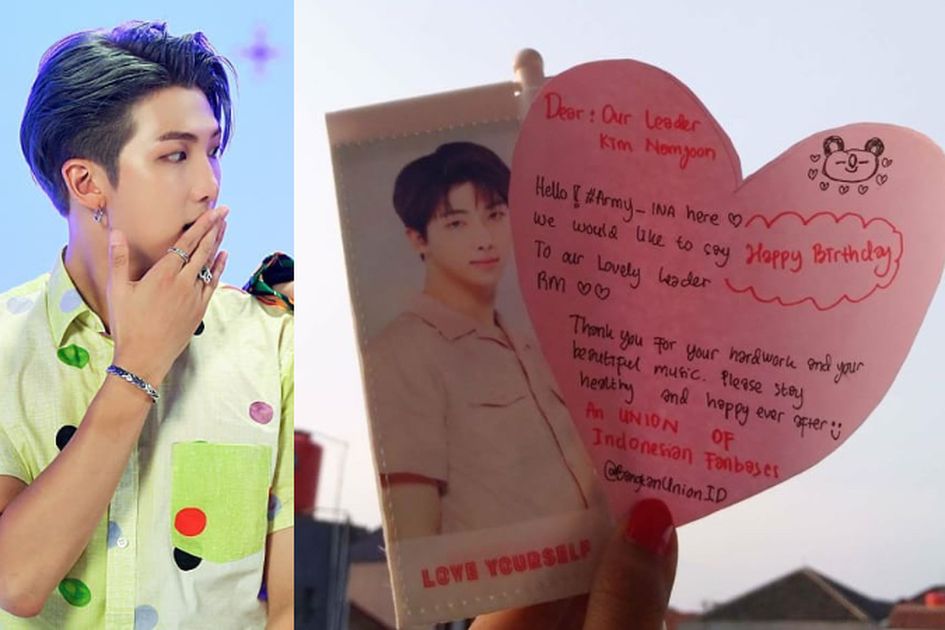 Dear : Our Leader
Kim Namjoon
Hello! #Army_INA here ♡
We would like to say Happy Birthday
To our Lovely Leader
RM ♡♡
Thank you for your hardwork and your
beautiful music. Please stay
healthy and happy ever after
An UNION OF
Indonesian Fanbases
@BangtanUnionID
LOVE YOURSELF